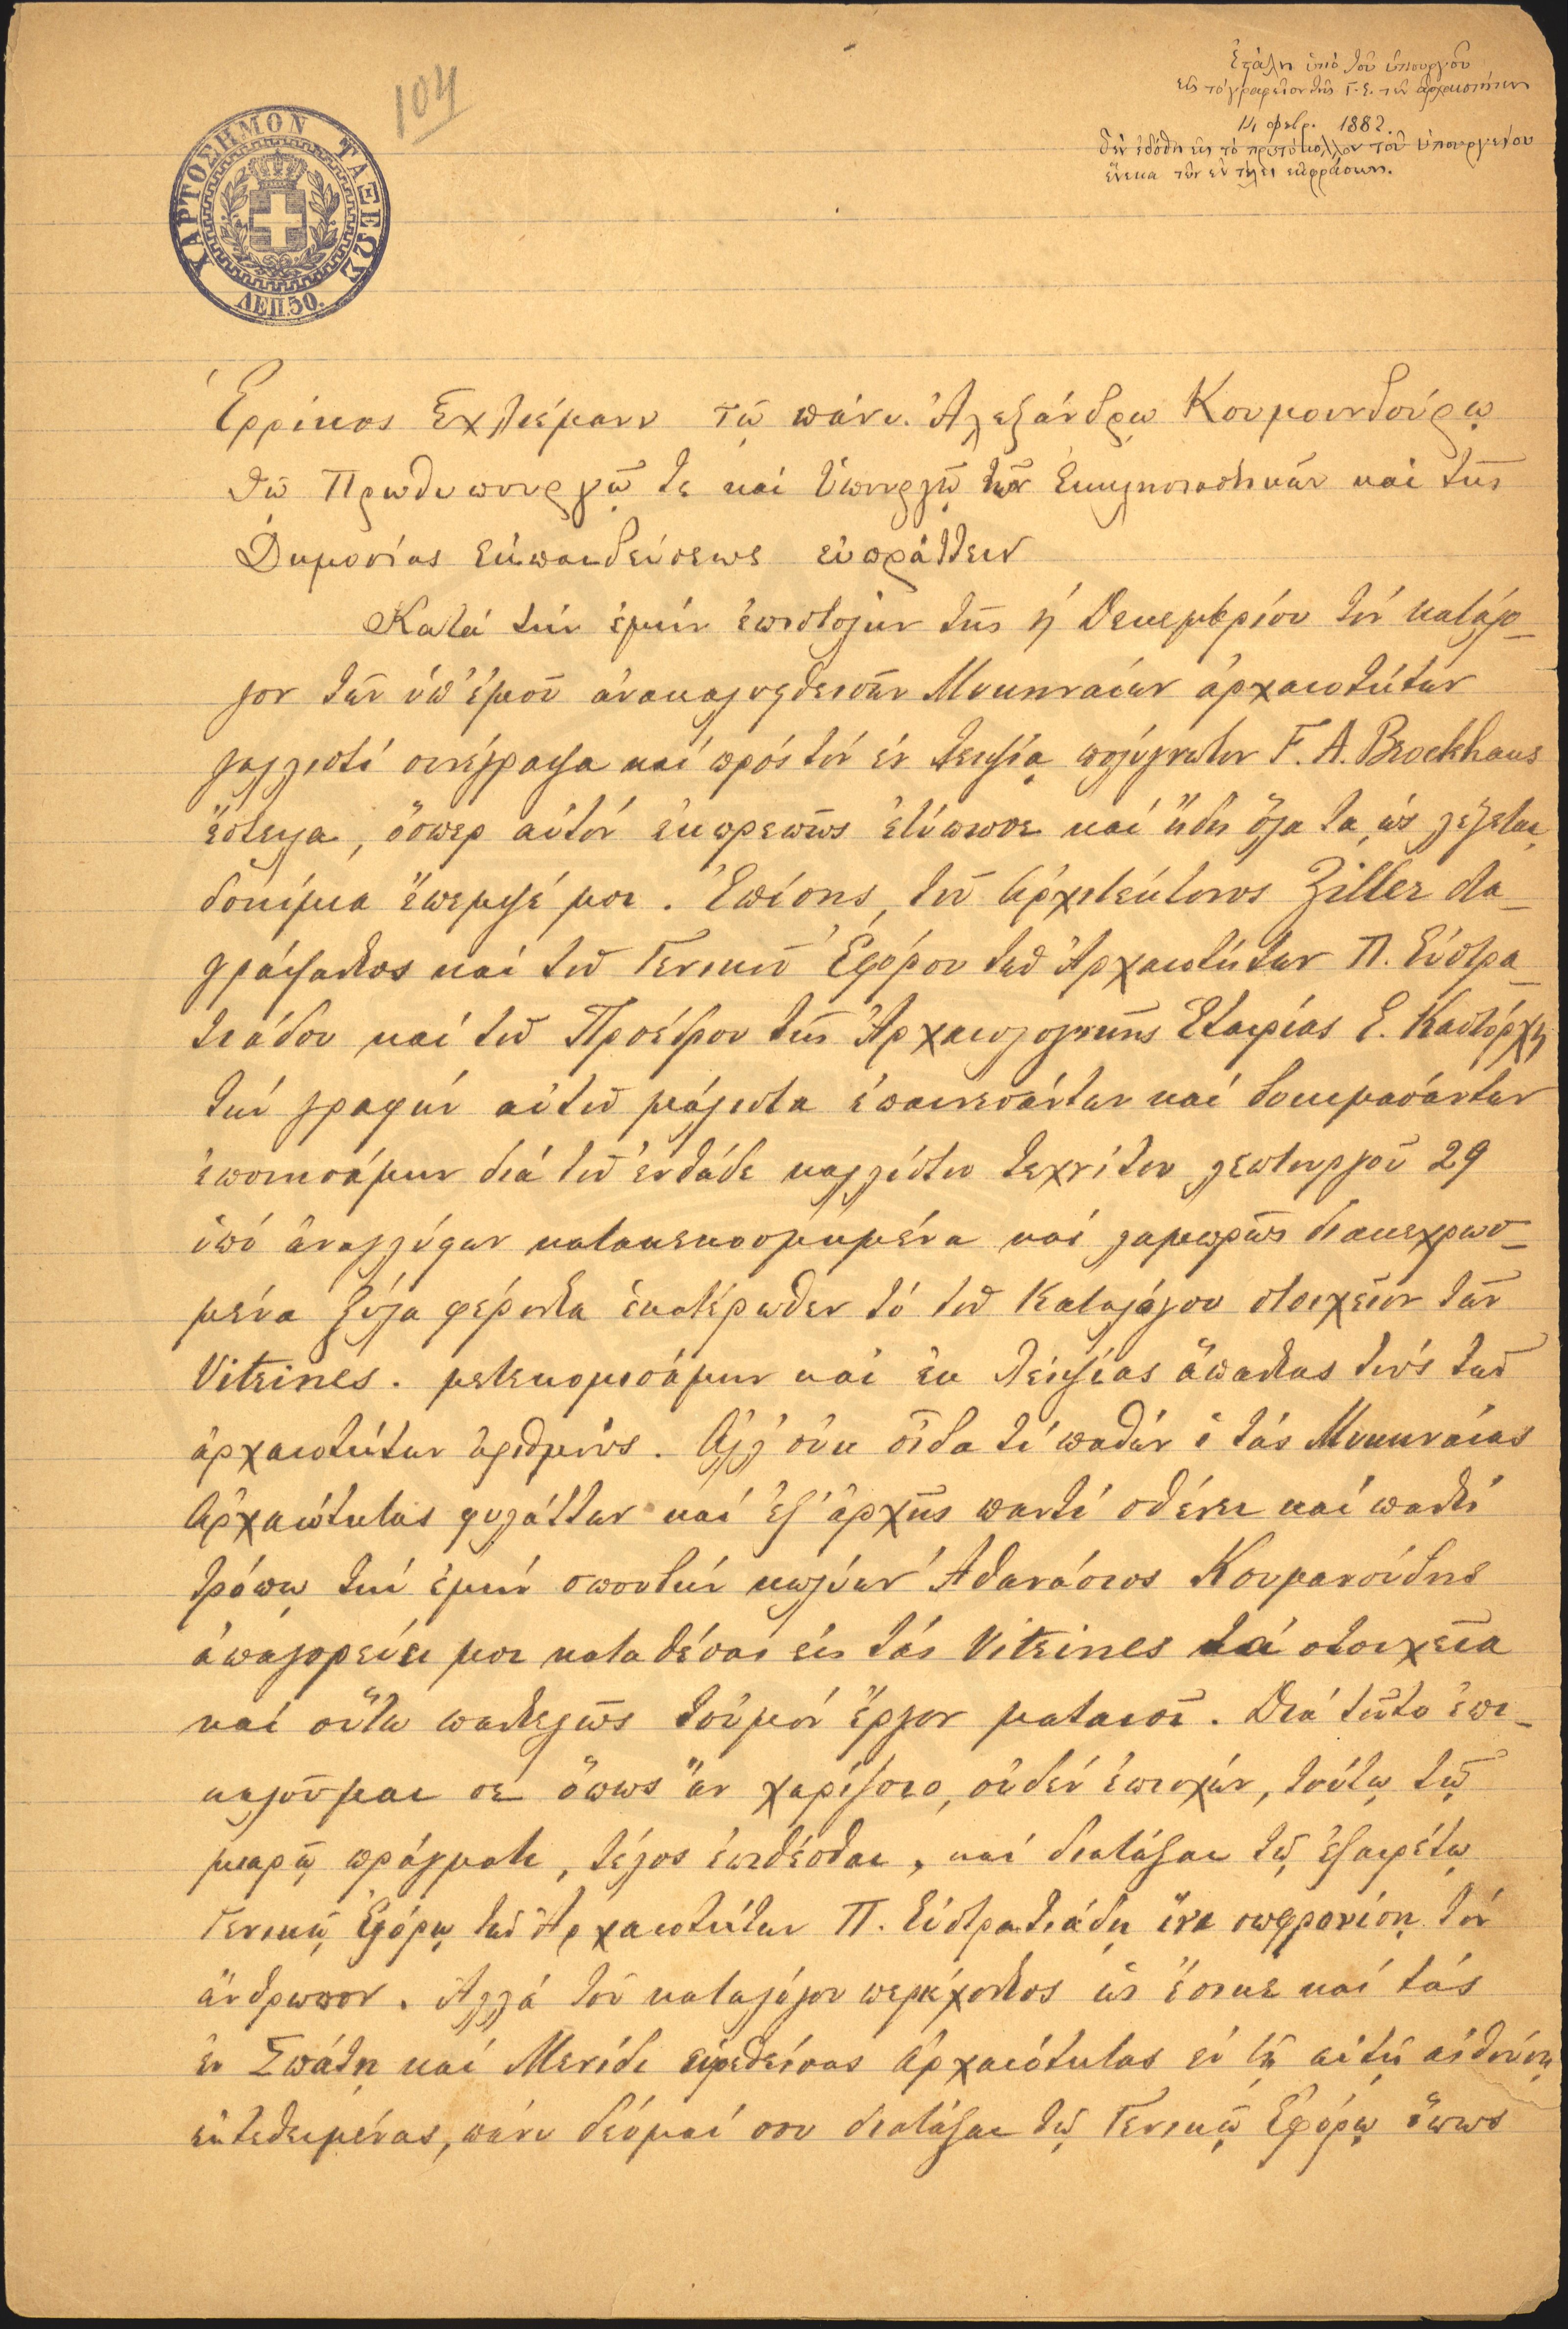 104
ΧΑΡΤΟΣΗΜΟΝ ΤΑΞΕΩΣ
ΛΕΠ. 50.
Ἐστάλη ὑπὸ τοῦ ὑπουργοῦ
εἰς τὸ γραφεῖον τῆς Γ. Ἐ. τῶν ἀρχαιοτήτων
14 φεβρ. 1882.
δὲν ἐδόθη εἰς τὸ πρωτόκολλον τοῦ ὑπουργείου
ἕνεκα τῶν ἐν τέλει ἐκφράσεων.
Ἑρρίκος Σχλιέμανν τῷ πάνυ Ἀλεξάνδρῳ Κουμουνδούρῳ
τῷ Πρωθυπουργῷ τε καὶ Ὑπουργῷ τῶν Ἐκκλησιαστικῶν καὶ τῆς
Δημοσίας Ἐκπαιδεύσεως εὐπράττειν
Κατὰ τὴν ἐμὴν ἐπιστολὴν τῆς ή Δεκεμβρίου τὸν κατάλο-
γον τῶν ὑπ' ἐμοῦ ἀνακαλυφθεισῶν Μυκηναίων ἀρχαιοτήτων
γαλλιστὶ συνέγραψα καὶ πρὸς τὸν ἐν Λειψίᾳ πολύγνωτον F. A. Brockhaus
ἔστειλα, ὅσπερ αὐτὸν ἐκπρεπῶς ἐτύπωσε καὶ ἤδη ὅλα τα, ὡς λέγεται,
δοκίμια ἔπεμψέ μοι. Ἐπίσης, τοῦ ἀρχιτέκτονος Ziller δια-
γράψαντος καὶ τοῦ Γενικοῦ Ἐφόρου τῶν Ἀρχαιοτήτων Π. Εὐστρα-
τιάδου καὶ τοῦ Προέδρου τῆς Ἀρχαιολογικῆς Ἑταιρίας Ε. Καστόρχη
τὴν γραφὴν αὐτοῦ μάλιστα ἐπαινεσάντων καὶ δοκιμασάντων
ἐποιησάμην διὰ τοῦ ἐνθάδε καλλίστου τεχνίτου λεπτουργοῦ 29
ὑπὸ ἀναγλύφων κατακεκοσμημένα καὶ λαμπρῶς διακεχρωσ-
μένα ξύλα φέροντα ἑκατέρωθεν τὸ τοῦ Καταλόγου στοιχεῖον τῶν
Vitrines. μετεκομισάμην καὶ ἐκ Λειψίας ἅπαντας τοὺς τῶν
ἀρχαιοτήτων ἀριθμούς. Ἀλλ' οὐκ οἶδα τί παθὼν ὁ τὰς Μυκηναίας
Ἀρχαιότητας φυλάττων καὶ ἐξ ἀρχῆς παντὶ σθένει καὶ παντὶ
τρόπῳ τὴν ἐμὴν σπουδὴν κωλύων Ἀθανάσιος Κουμανούδης
ἀπαγορεύει μοι καταθέσαι εἰς τὰς Vitrines τὰ στοιχεῖα
καὶ οὕτω παντελῶς τοὐμὸν ἔργον ματαιοῖ. Διὰ τοῦτο ἐπι-
καλοῦμαι σε ὅπως ἂν χαρίζοιο, οὐδὲν ἐπισχών, τούτῳ τῷ
μιαρῷ πράγματι, τέλος ἐπιθέσθαι, καὶ διατάξαι τῷ ἐξαιρέτῳ
Γενικῷ Ἐφόρῳ τῶν Ἀρχαιοτήτων Π. Εὐστρατιάδῃ ἵνα σωφρονίσῃ τὸν
ἄνθρωπον. Ἀλλὰ τοῦ καταλόγου περιέχοντος ὡς ἔοικε καὶ τὰς
ἐν Σπάτῃ καὶ Μενίδι εὑρεθείσας Ἀρχαιότητας ἐν τῇ αὐτῇ αἰθούσῃ
ἐκτεθειμένας, πάνυ δέομαί σου διατάξαι τῷ Γενικῷ Ἐφόρῳ ὅπως